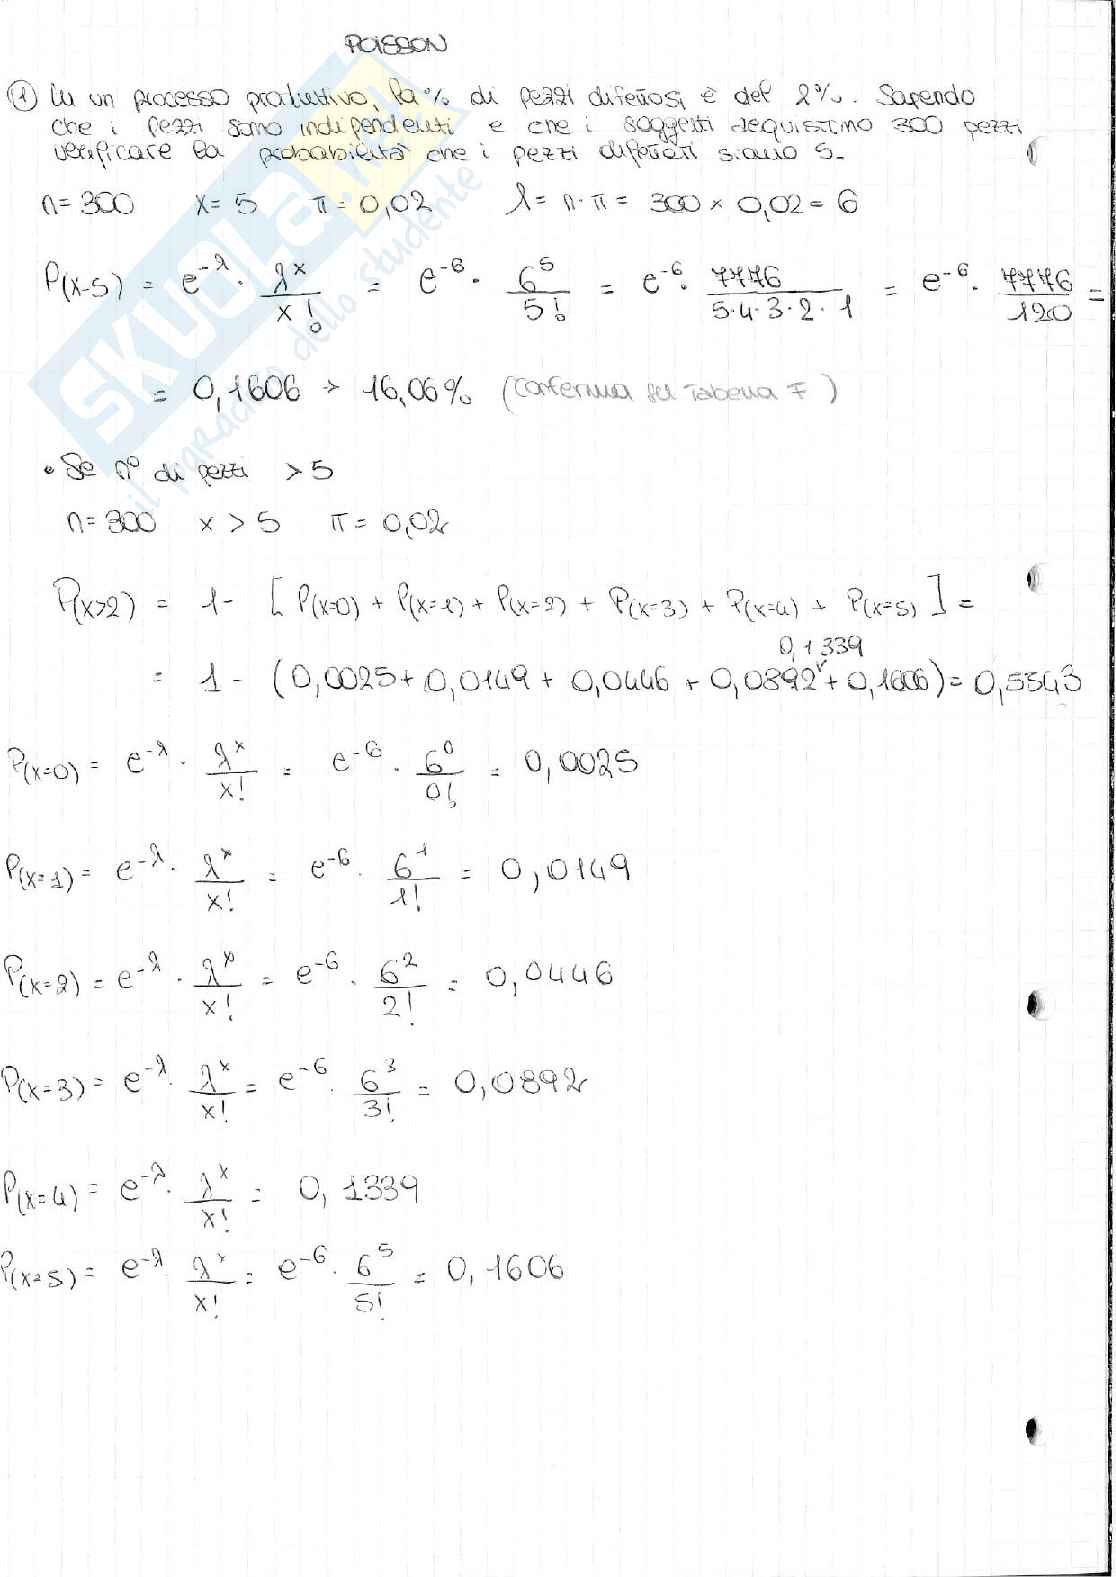 POISSON
① In un processo produttivo, la % di pezzi difettosi è del 2%. Sapendo
che i pezzi sono indipendenti e che i soggetti acquistino 300 pezzi
verificare la probabilità che i pezzi difettati siano 5.
n = 300 x = 5 π = 0,02 λ = n·π = 300 × 0,02 = 6
P(x=5) = e^-λ · λ^x / x! = e^-6 · 6^5 / 5! = e^-6 · 7776 / 5·4·3·2·1 = e^-6 · 7776 / 120 =
= 0,1606 → 16,06% (Conferma su Tabella F)
• Se n° di pezzi > 5
n = 300 x > 5 π = 0,02
P(x>2) = 1 - [P(x=0) + P(x=1) + P(x=2) + P(x=3) + P(x=4) + P(x=5)] =
0,1339
= 1 - (0,0025 + 0,0149 + 0,0446 + 0,0892 + 0,1606) = 0,5543
P(x=0) = e^-λ · λ^x / x! = e^-6 · 6^0 / 0! = 0,0025
P(x=1) = e^-λ · λ^x / x! = e^-6 · 6^1 / 1! = 0,0149
P(x=2) = e^-λ · λ^x / x! = e^-6 · 6^2 / 2! = 0,0446
P(x=3) = e^-λ · λ^x / x! = e^-6 · 6^3 / 3! = 0,0892
P(x=4) = e^-λ · λ^x / x! = 0,1339
P(x=5) = e^-λ · λ^x / x! = e^-6 · 6^5 / 5! = 0,1606
SKUOLA.NET
il paradiso dello studente